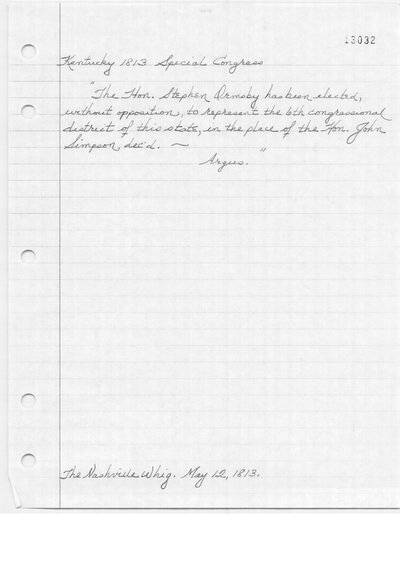 13032
Kentucky 1813 Special Congress
"The Hon. Stephen Ormsby has been elected,
without opposition, to represent the 6th congressional
district of this state, in the place of the Hon. John
Simpson, dec'd. ~
Argus."
The Nashville Whig. May 12, 1813.